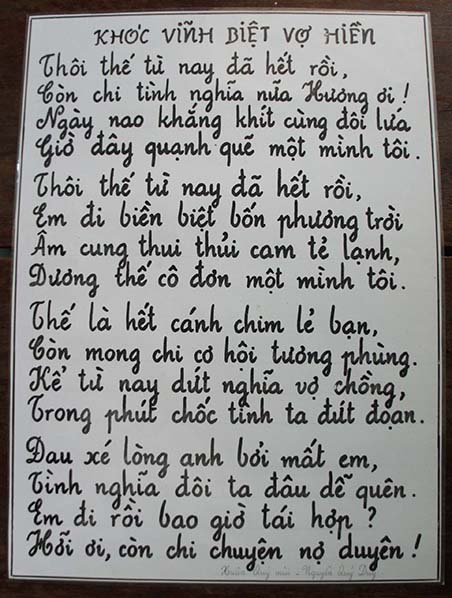 KHÓC VĨNH BIỆT VỢ HIỀN
Thôi thế từ nay đã hết rồi,
Còn chi tình nghĩa nữa Hương ơi !
Ngày nao khắng khít cùng đôi lứa
Giờ đây quạnh quẽ một mình tôi.
Thôi thế từ nay đã hết rồi,
Em đi biền biệt bốn phương trời
Âm cung thui thủi cam tẻ lạnh,
Dương thế cô đơn một mình tôi.
Thế là hết cánh chim lẻ bạn,
Còn mong chi cơ hội tương phùng.
Kể từ nay dứt nghĩa vợ chồng,
Trong phút chốc tình ta đứt đoạn.
Đau xé lòng anh bởi mất em,
Tình nghĩa đôi ta đâu dễ quên.
Em đi rồi bao giờ tái hợp ?
Hỡi ơi, còn chi chuyện nợ duyên !
Xuân Quý mùi - Nguyễn Quý Duy